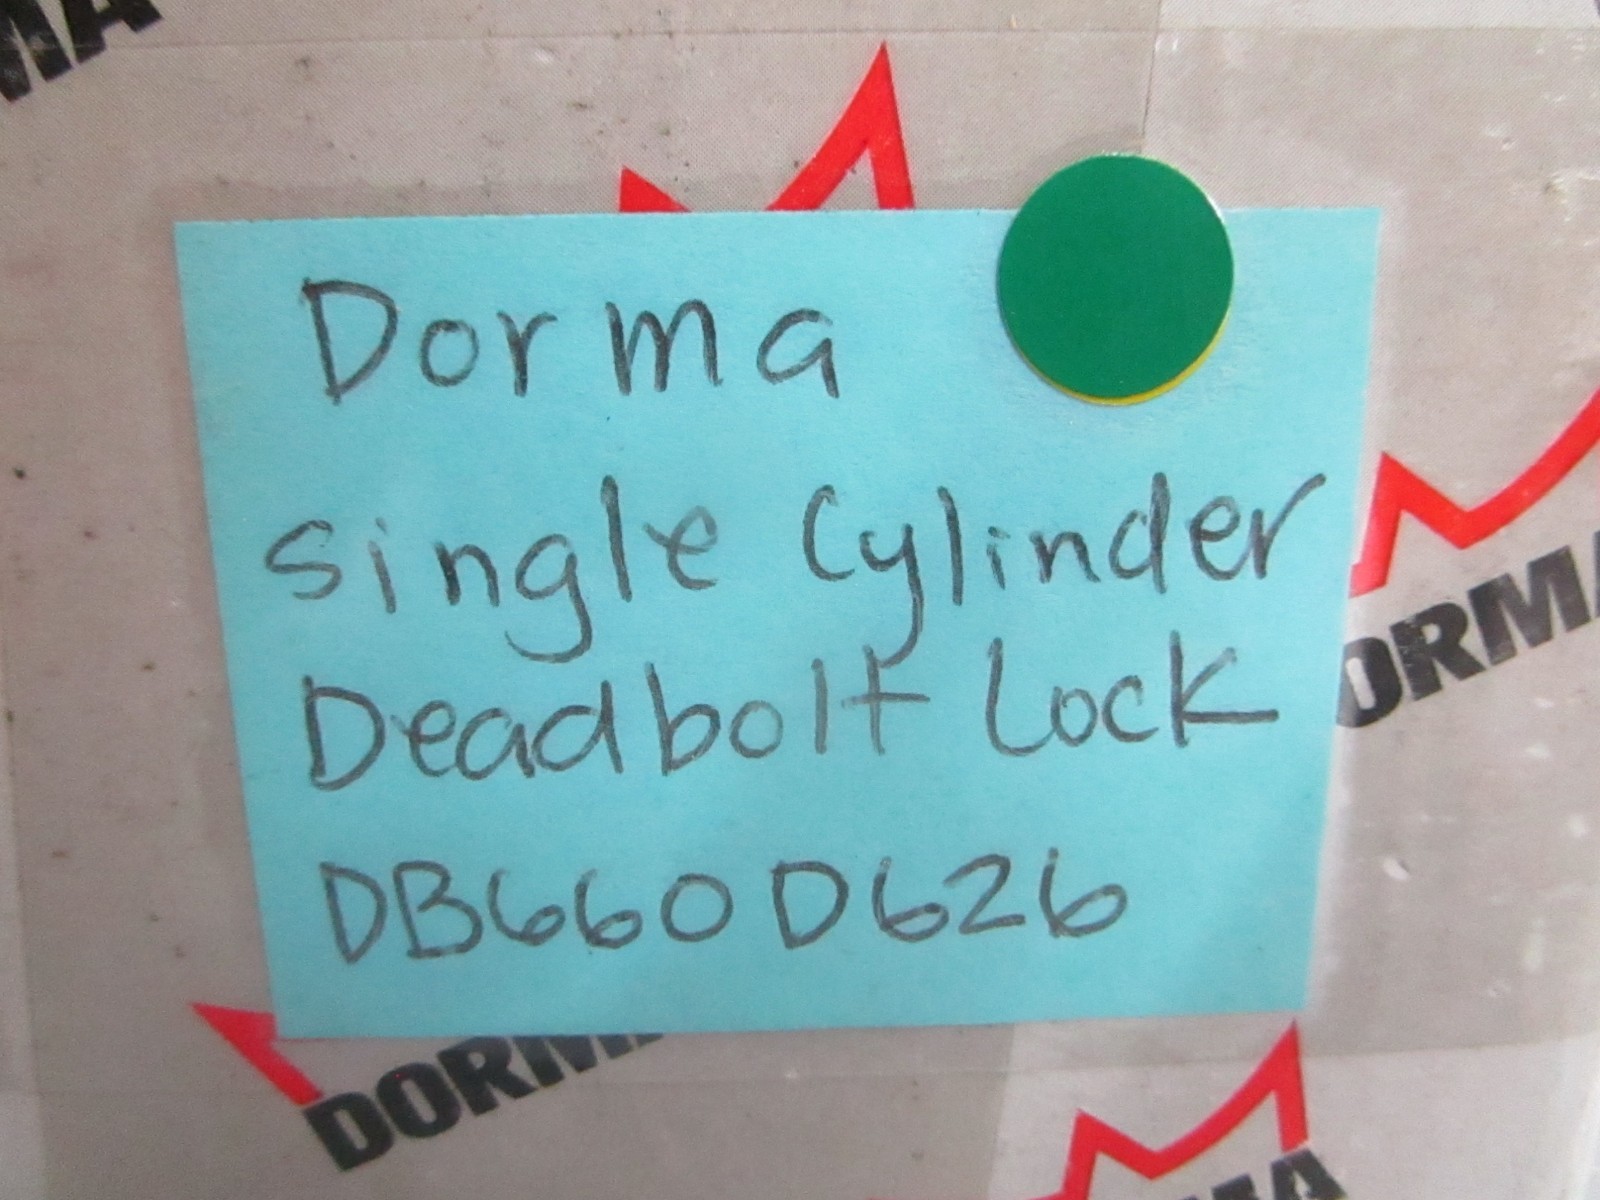 MA
Dorma
single Cylinder
Deadbolt Lock
DB660 D626
ORMA
DORMA
MA